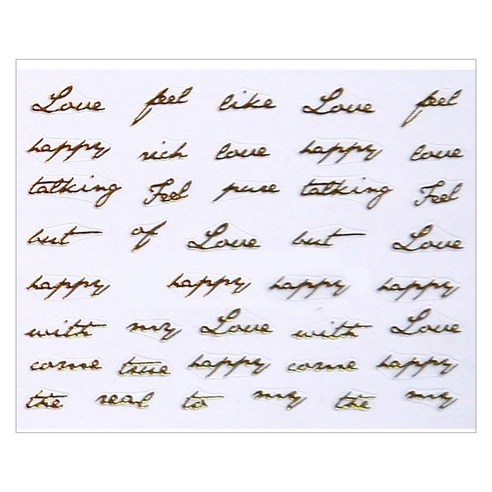 Love feel like Love feel
happy rich love happy love
talking Feel pure talking Feel
but of Love but Love
happy happy happy happy
with my Love with Love
come true happy come happy
the real to my the my